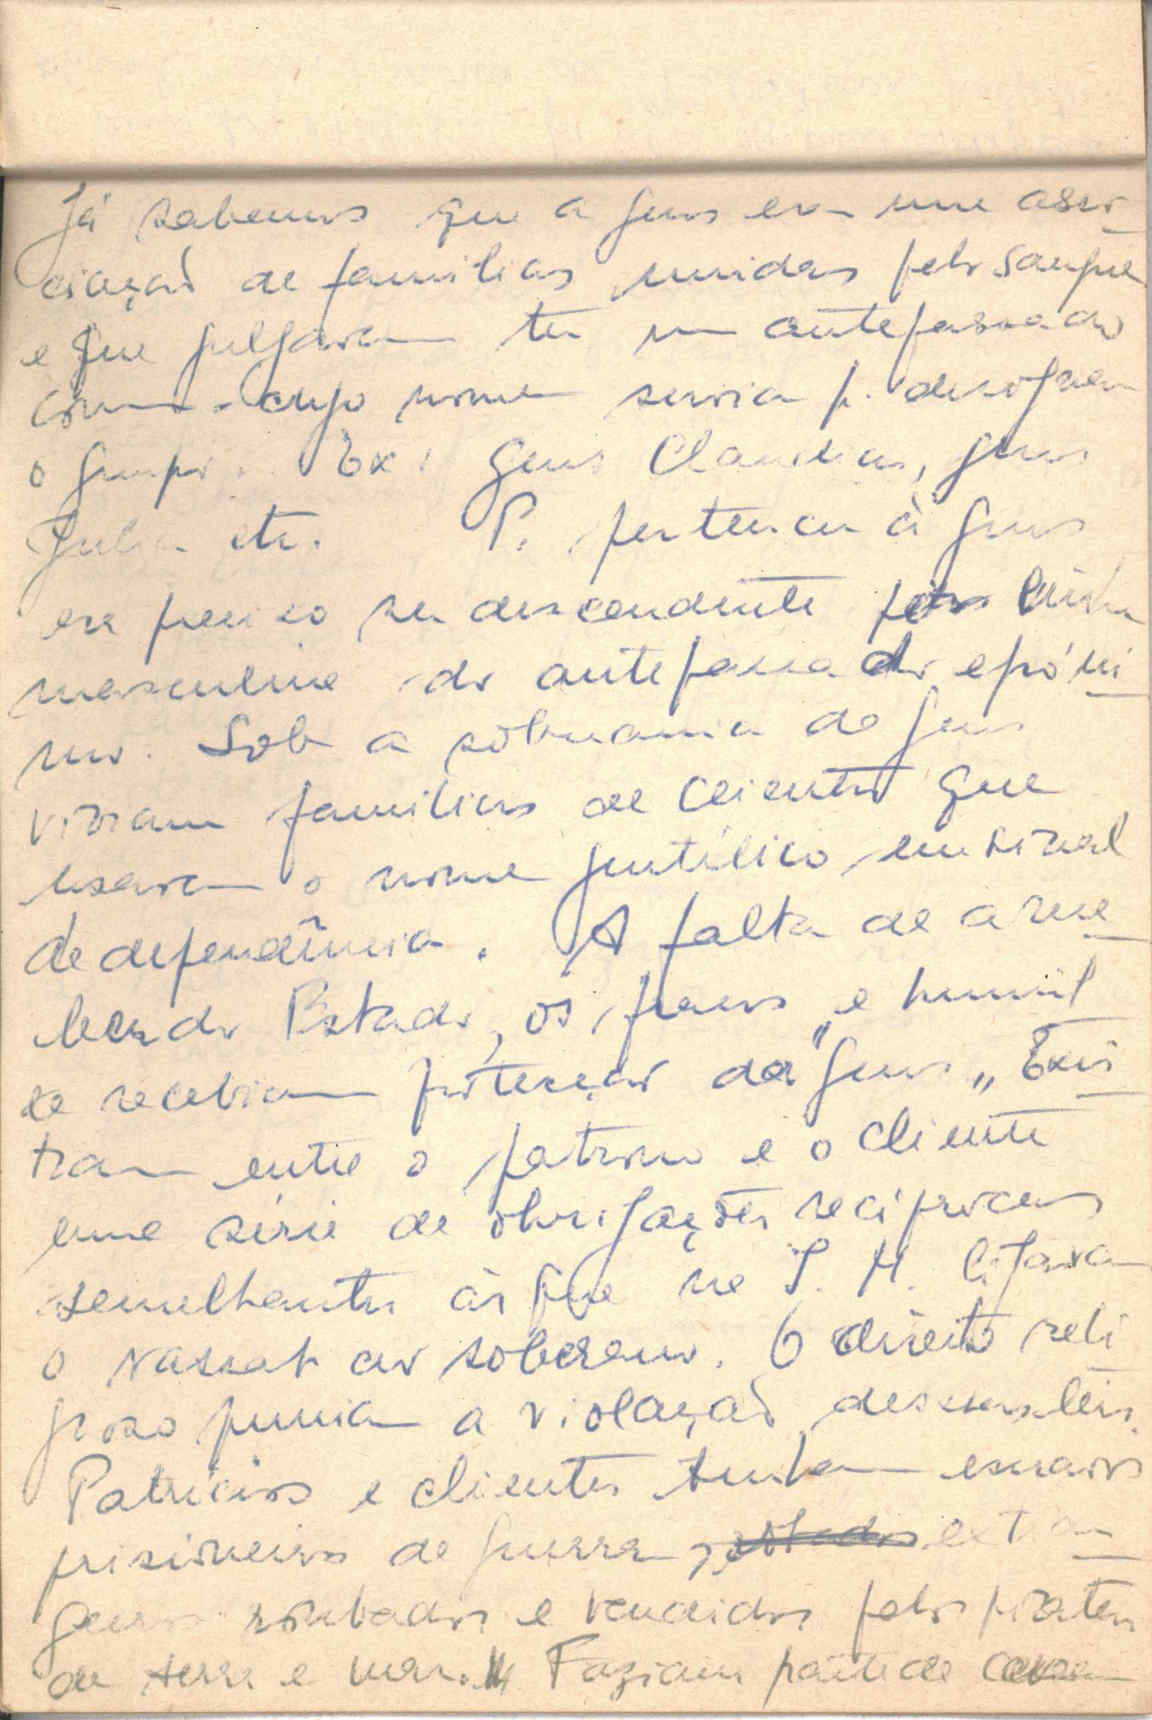 Já sabemos que a gens era uma asso
ciação de familias unidas pelo sangue
e que julgavam ter um antepassado
comum cujo nome servia p. designar
o grupo. Ex: gens Claudia, gens
Julia etc. P. pertencer à gens
era preciso ser descendente pela linha
masculina do antepassado epóni
mo. Sob a soberania da gens
viviam familias de clientes que
usavam o nome gentílico em sinal
de dependência. A falta de
do Estado, os fracos e humil
des recebiam proteção da "gens" Exis
tiam entre o patrono e o cliente
uma série de obrigações recíprocas
semelhantes às que na I. M. ligavam
o vassalo ao soberano. O direito reli
gioso punia a violação destas leis.
Patricios e clientes tinham escravos
prisioneiros de guerra, estran
geiros roubados e vendidos pelos piratas
de terra e mar. Faziam parte de